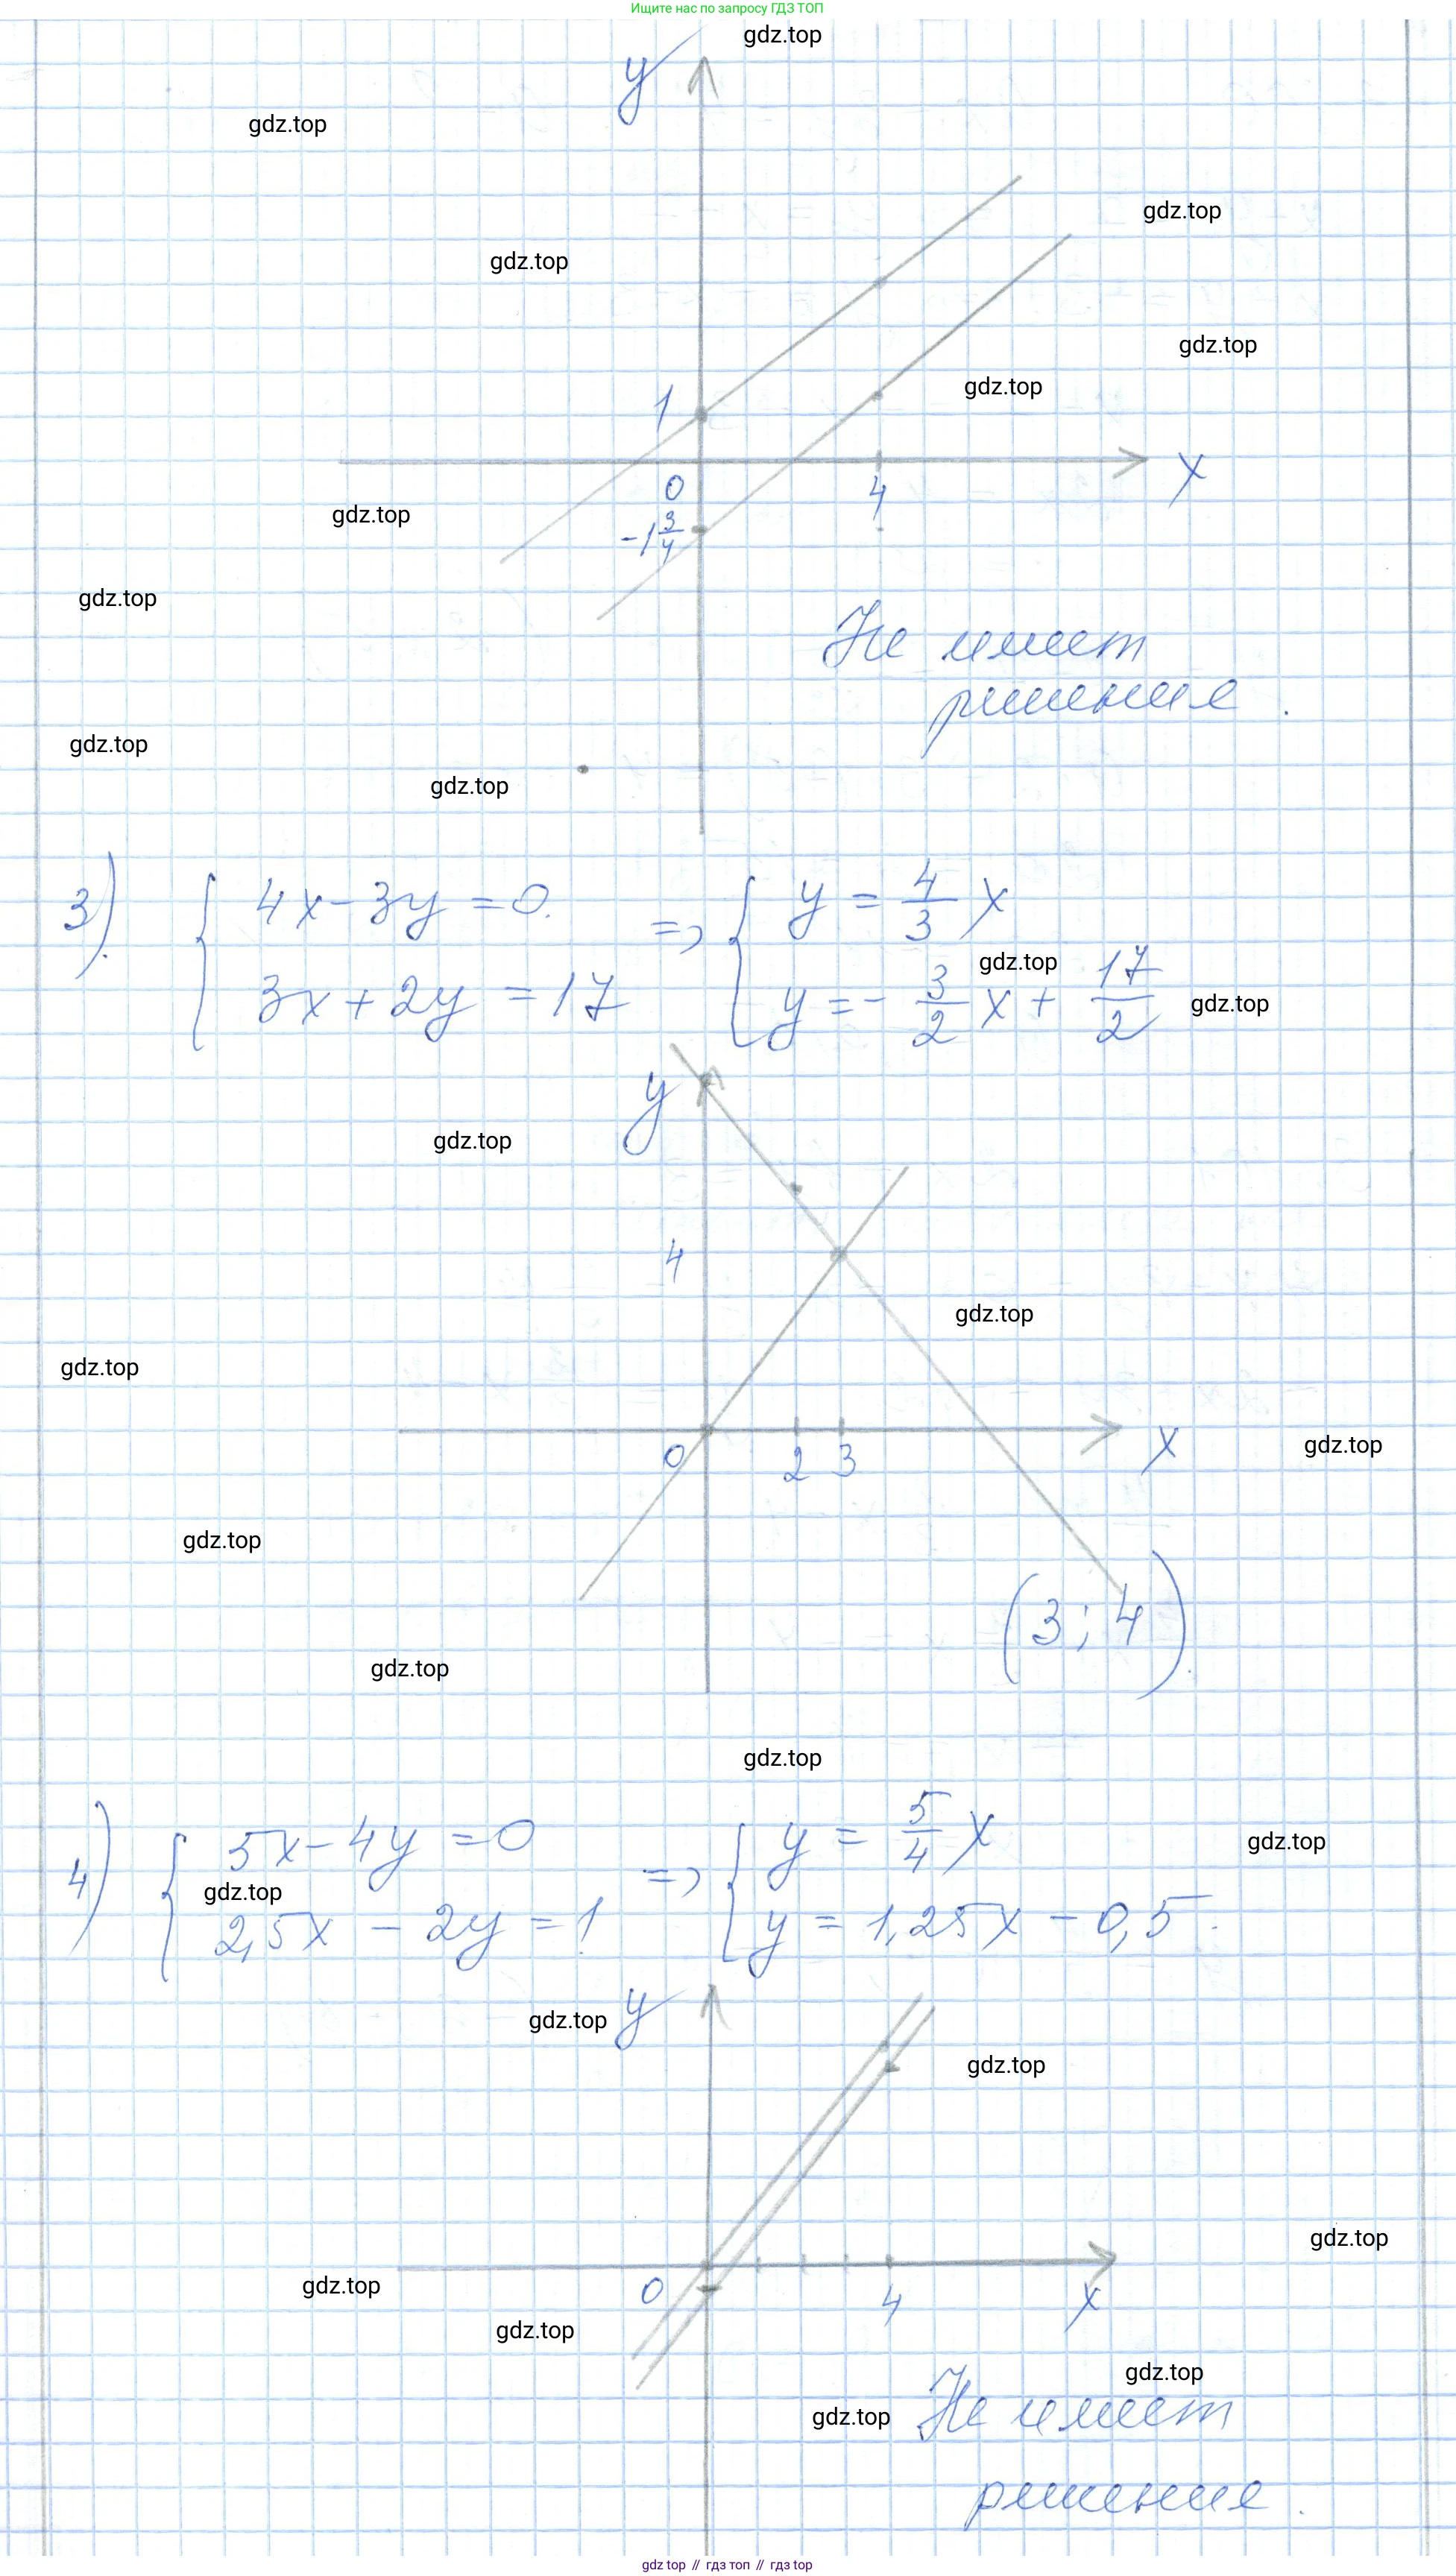 Ищите нас по запросу ГДЗ ТОП
gdz.top
y
gdz.top
gdz.top
gdz.top
gdz.top
gdz.top
1
x
0
4
gdz.top
-1 3/4
gdz.top
Не имеет
решение.
gdz.top
gdz.top
3) { 4x - 3y = 0 => { y = 4/3 x
gdz.top
3x + 2y = 17 y = - 3/2 x + 17/2
gdz.top
y
gdz.top
4
gdz.top
gdz.top
0 2 3 x
gdz.top
gdz.top
(3; 4)
gdz.top
gdz.top
4) { 5x - 4y = 0 => { y = 5/4 x
gdz.top
gdz.top
2,5x - 2y = 1 y = 1,25x - 0,5.
y
gdz.top
gdz.top
gdz.top
0 4 x
gdz.top
gdz.top
gdz.top
Не имеет
gdz.top
решение.
gdz top // гдз топ // гдз top